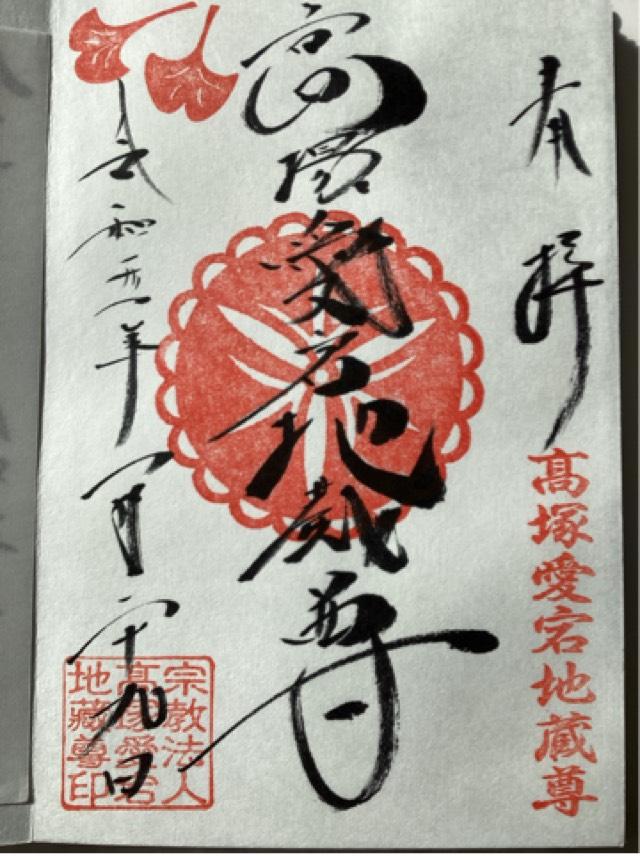 奉拝
髙塚愛宕地蔵尊
高塚愛宕地蔵尊
令和元年十一月二十九日
宗教法人
高塚愛宕
地蔵尊印